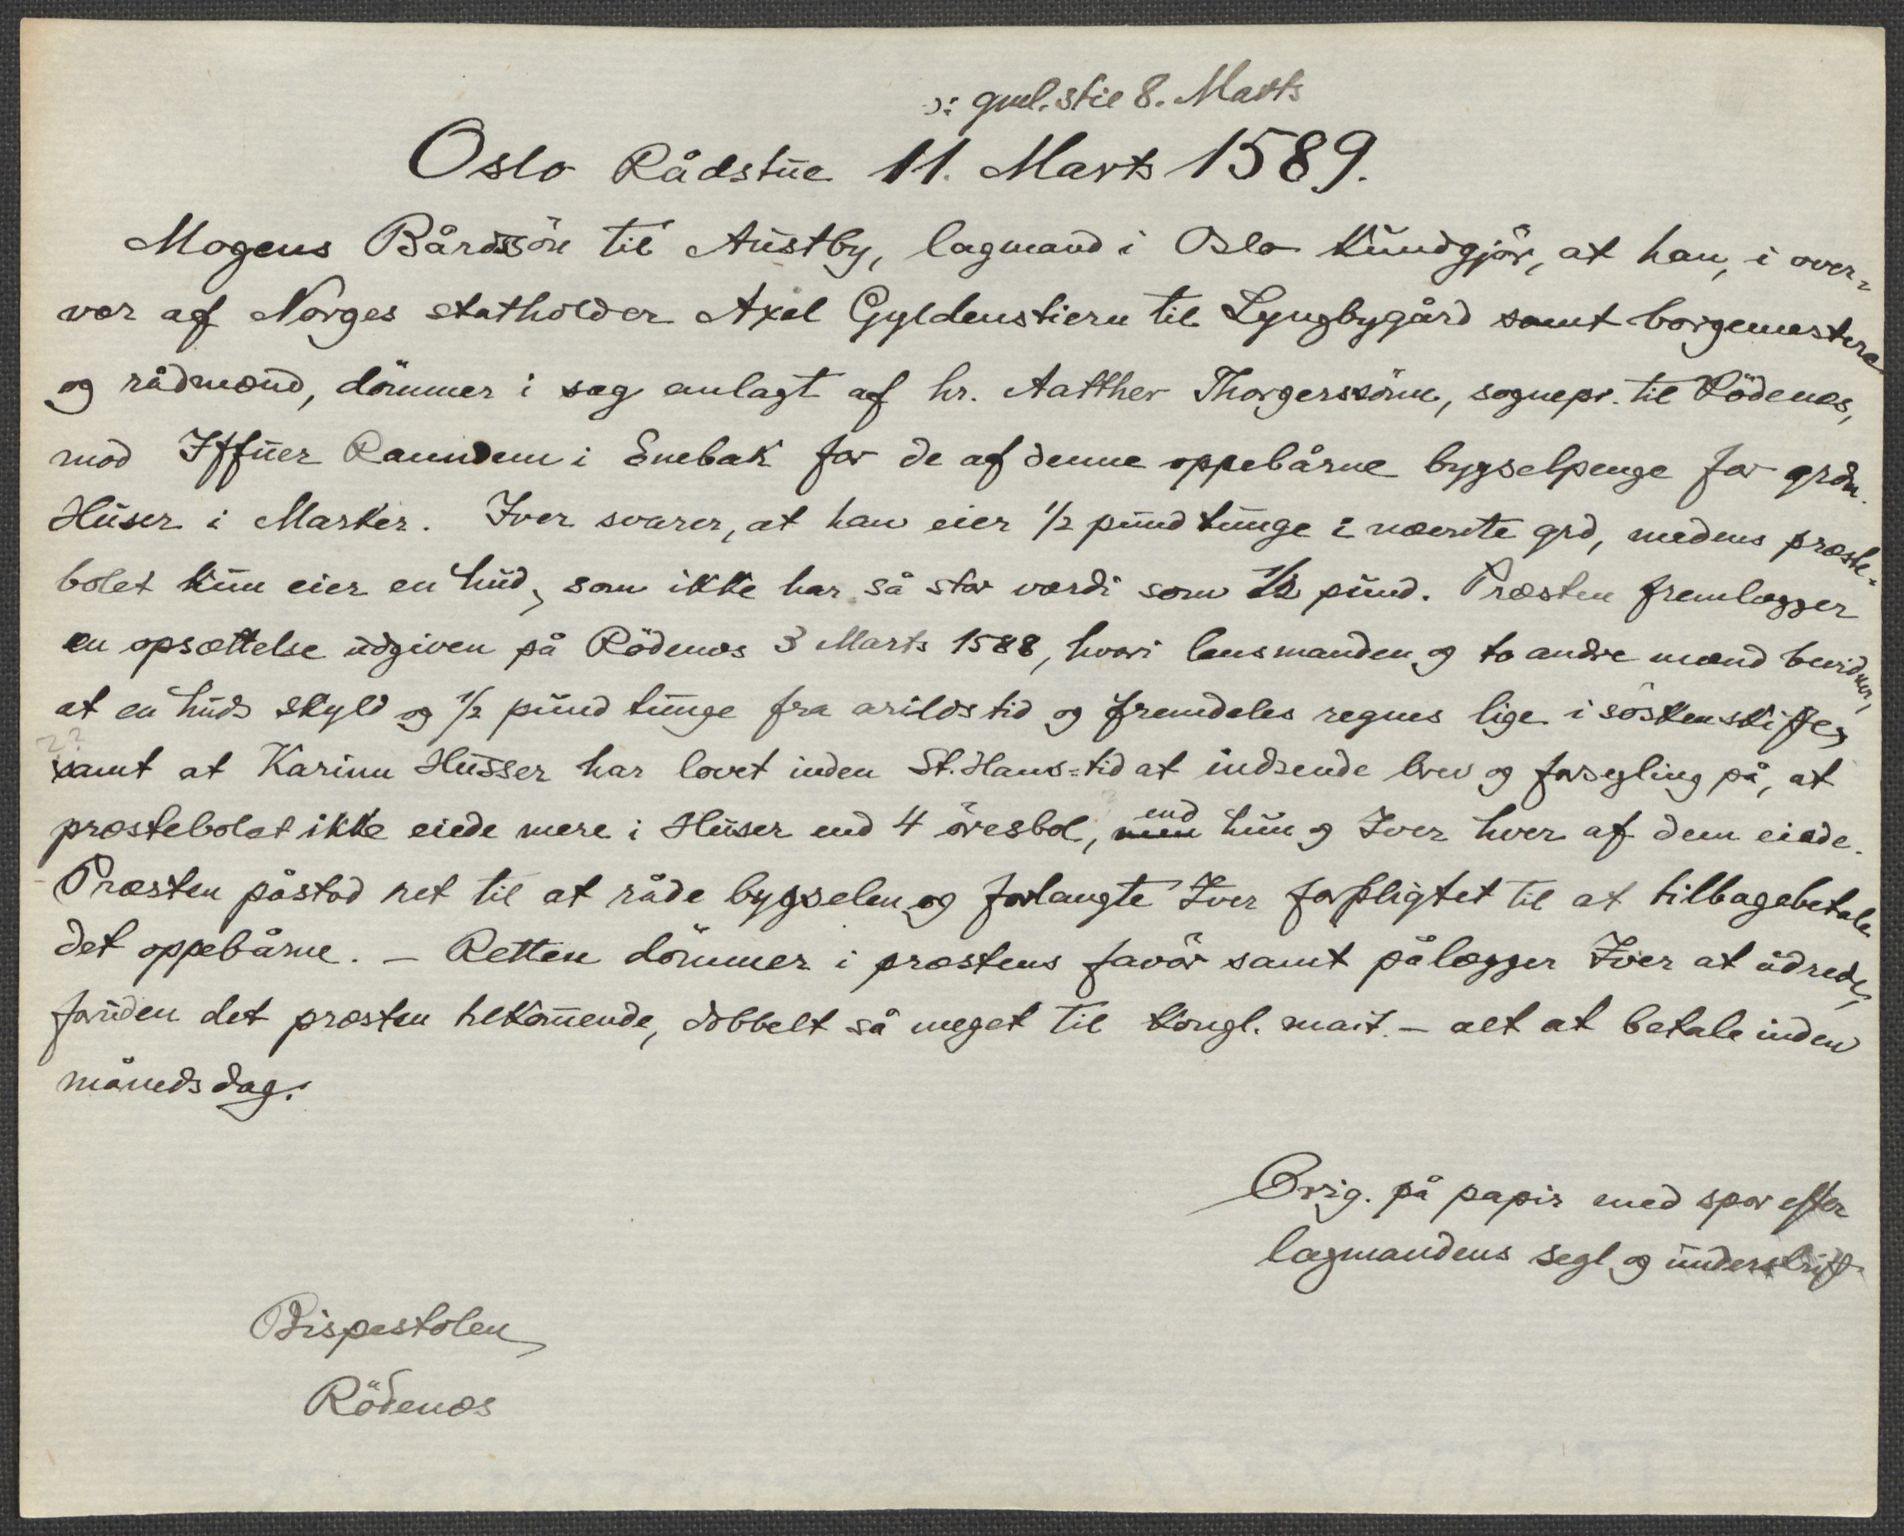 ɔ: gml. stil 8. Marts
Oslo Rådstue 11. Marts 1589.
Mogens Bårdssön til Austby, lagmand i Oslo kundgjör, at han, i over-
vær af Norges statholder Axel Gyldenstiern til Lyngbygård samt borgemestere
og rådmænd, dömmer i sag anlagt af hr. Aatther Thorgerssönn, sognepr. til Rödenæs,
mod Iffuer Ramndem i Enebak for de af denne oppebårne bygselpenge for grdn.
Huser i Marker. Iver svarer, at han eier 1/2 pund tunge i nævnte grd, medens præste-
bolet kun eier en hud, som ikke har så stor værdi som 1/2 pund. Præsten fremlægger
en opsættelse udgiven på Rödenæs 3 Marts 1588, hvori lensmanden og to andre mænd bevidner,
at en huds skyld og 1/2 pund tunge fra arilds tid og fremdeles regnes lige i söskenskifte,
samt at Karinn Husser har lovet inden St. Hans-tid at indsende brev og forsegling på, at
præstebolet ikke eiede mere i Huser end 4 öresbol, end hun og Iver hver af dem eiede.
Præsten påstod ret til at råde bygselen og forlangte Iver forpligtet til at tilbagebetale
det oppebårne. – Retten dömmer i præstens favör samt pålægger Iver at udrede,
foruden det præsten tilkommende, dobbelt så meget til kongl. mait. – alt at betale inden
månedsdag.
Orig. på papir med spor efter
lagmandens segl og underskrift
Bispestolen
Rödenæs